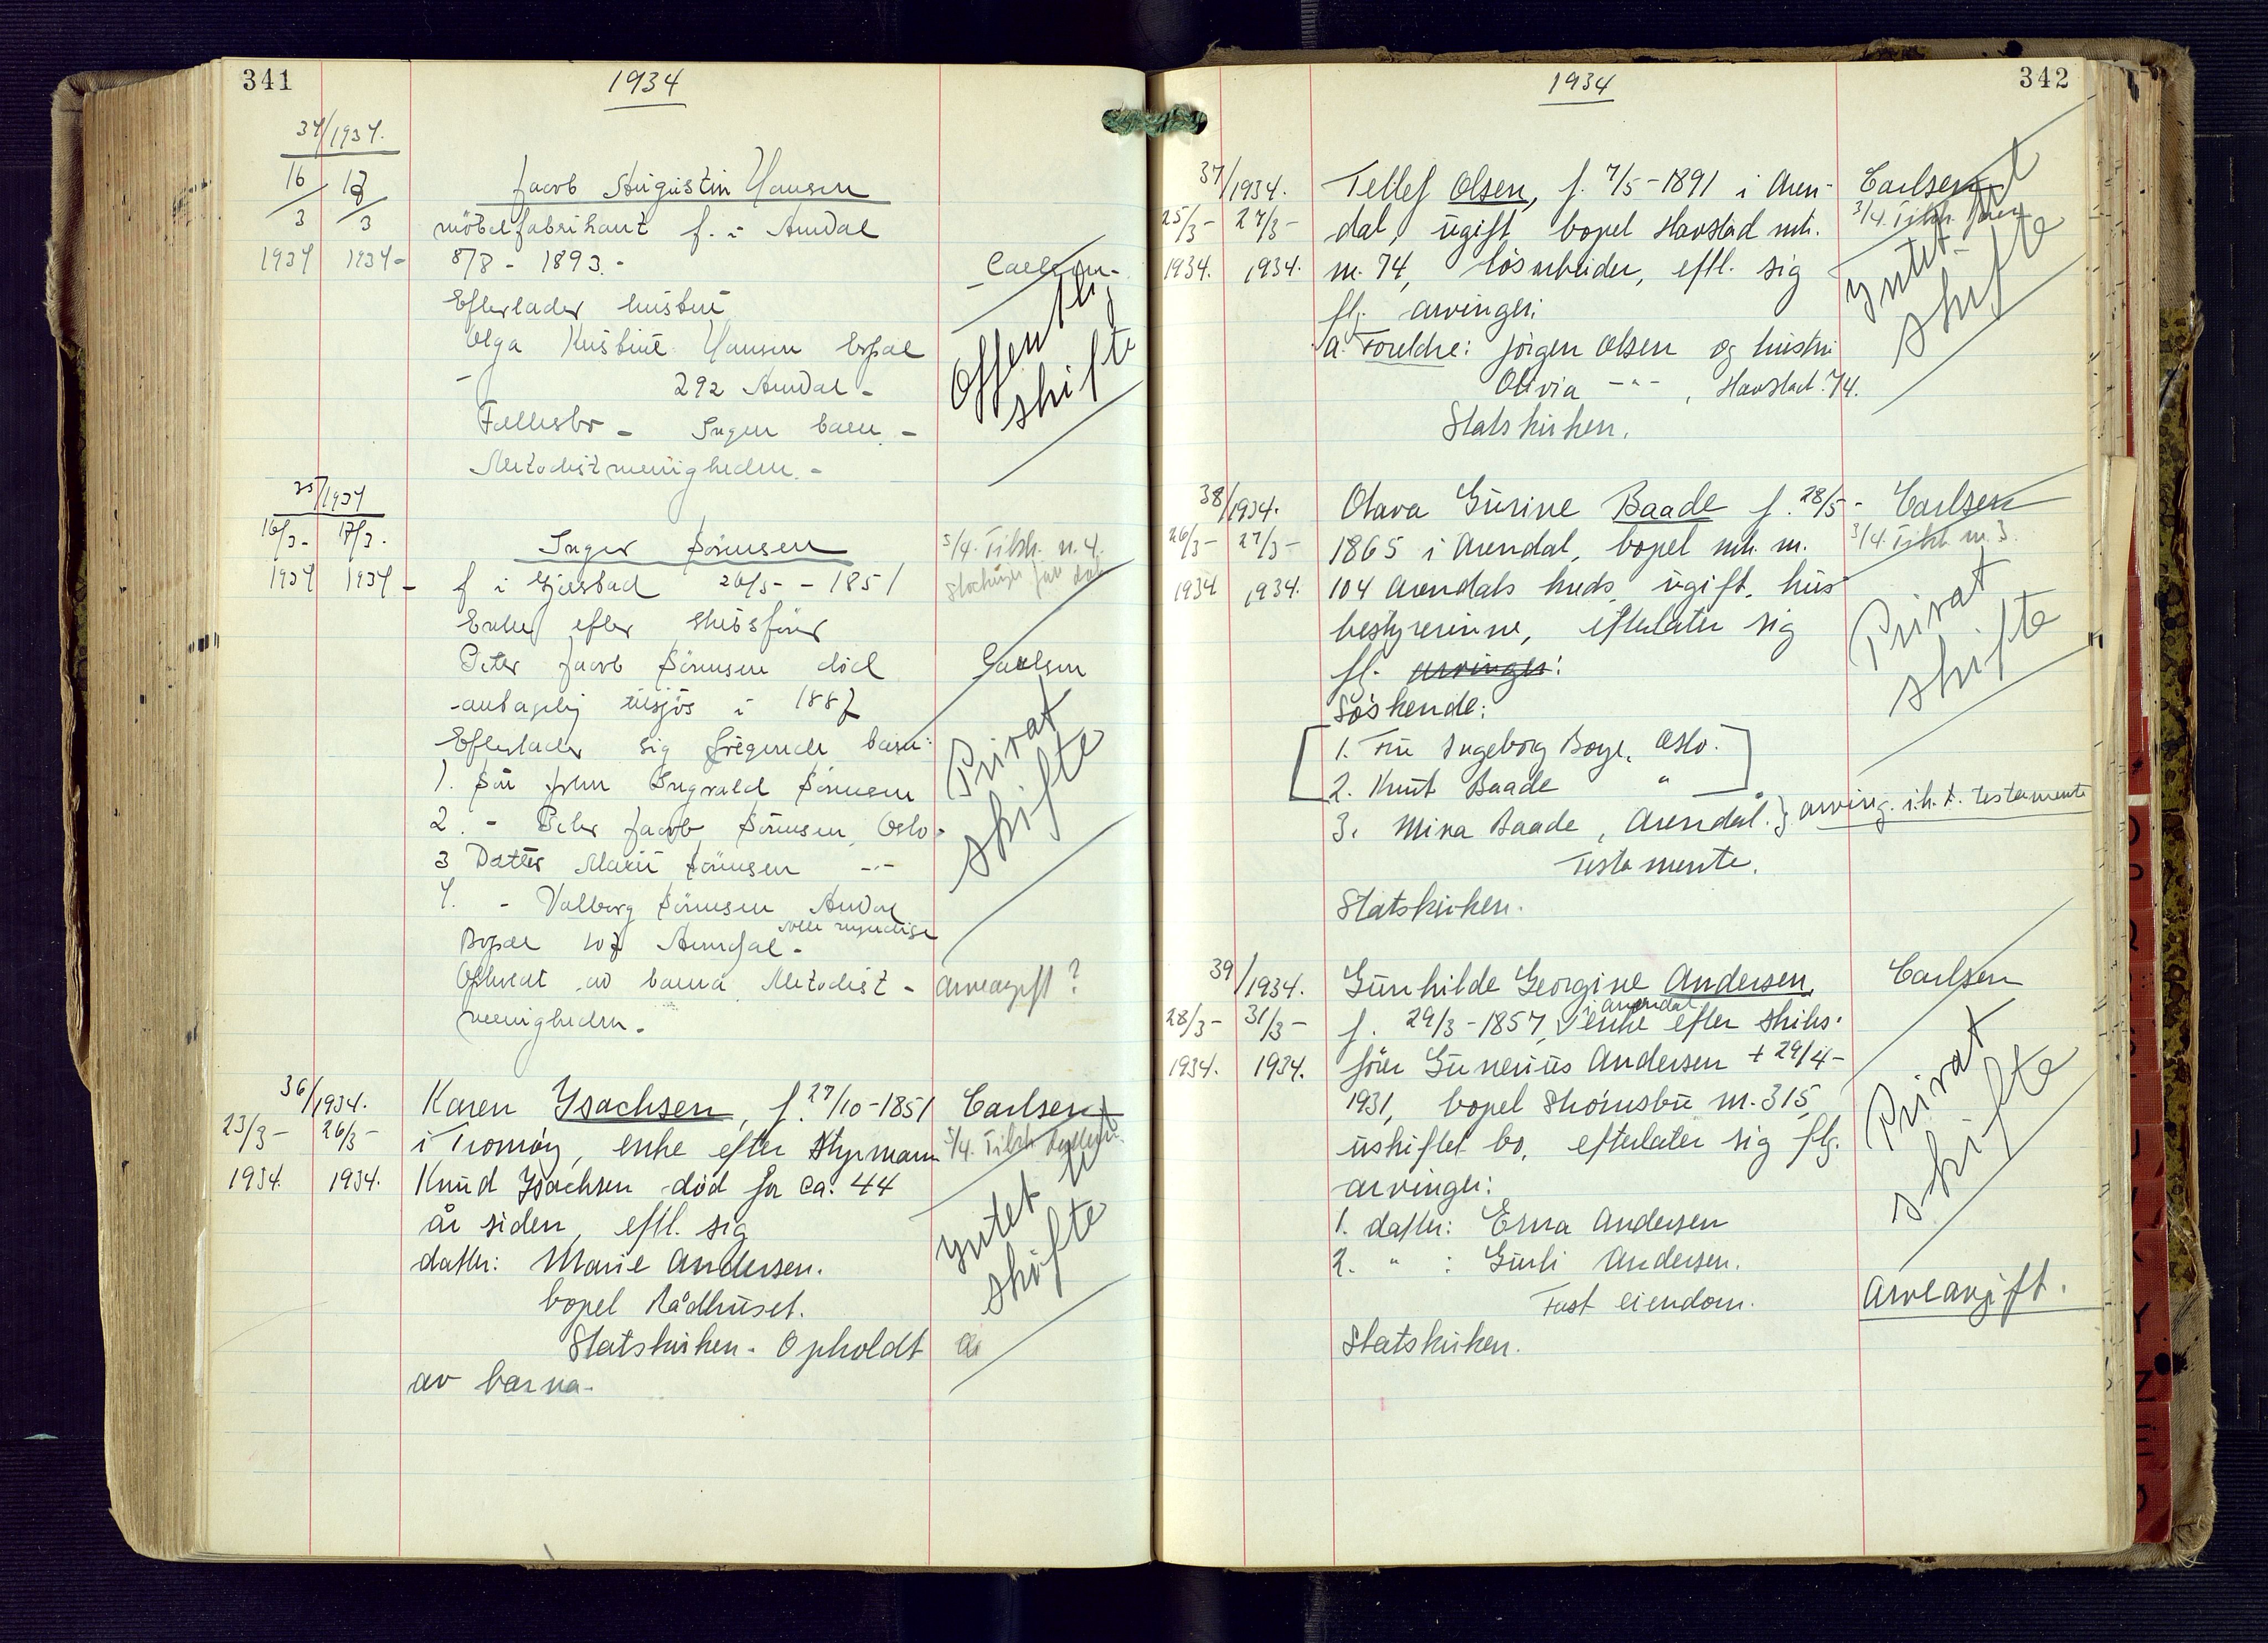 341
1934
34/1934.
16/3 17/3
1934 1934-
Jacob Augustin Hansen
möbelfabrikant f. i Arendal
8/8 - 1893.-
Carlsen-
Efterlader hustru
Olga Kristine Hansen bopæl
292 Arendal -
Offentlig
skifte
Fællesbo - Ingen barn. -
Metodistmenigheden. -
35/1934
16/3- 17/3.
1934 1934-
Inger Sörensen
5/4. Tilsk. n. 4.
f i Gjerstad 26/5 - 1851
Enke efter skibsförer
Peter Jacob Sörensen död
Carlsen
antagelig tilsjös i 1887
Efterlader sig fölgende barn:
1). Sön John Ingvald Sörensen
2. - Peter Jacob Sörensen, Oslo-
3 Datter Marie Sörensen -"-
4. - Valborg Sörensen Arendal
Alle myndige
Bopæl 107 Arendal -
Privat
skifte
Opholdt av barna Metodist-
menigheden.
Arveavgift?
36/1934.
23/3- 26/3-
1934. 1934.
Karen Ysachsen, f. 27/10-1851
i Tromöy, enke efter styrmann
Knud Ysachsen död for ca. 44
år siden, eftl. sig
datter: Marie Andersen.
bopel Rådhuset.
Statskirken. Opholdt
av barna.
Carlsen
5/4. Tilsk.
Yntet
skifte
342
1934
37/1934.
25/3- 27/3-
1934. 1934.
Tellef Olsen, f. 7/5-1891 i Aren-
dal, ugift bopel Havstad mtr.
m. 74, lösarbeider, eftl. sig
flg. arvinger:
a. Foreldre: Jörgen Olsen og hustru
Olivia -"-, Havstad 74.
Statskirken.
Carlsen
3/4. Tilsk.
Yntet
skifte
38/1934.
26/3- 27/3-
1934 1934.
Olava Gurine Baade f. 28/5-
1865 i Arendal, bopel mtr. m.
104 Arendals hreds, ugift, hus
bestyrerinne, efterlater sig
flg. arvinger:
Söskende:
1. Fru Ingeborg Boye, Oslo.
2. Knut Baade "
3. Mina Baade, Arendal. } arving. i.h.t. testamente
Testamente.
Statskirken.
Carlsen
3/4. Tilsk. m 3.
Privat
skifte
39/1934.
28/3- 31/3-
1934. 1934.
Gunhilde Georgine Andersen,
i Arendal
f. 29/3-1857, enke efter skibs-
förer Gunerius Andersen + 29/4-
1931, bopel Skömsbu m. 315,
uskiftet bo, efterlater sig flg.
arvinger:
1. datter: Erna Andersen
2. " : Gurli Andersen.
Fast eiendom.
Statskirken.
Carlsen
Privat
skifte
Arveavgift.